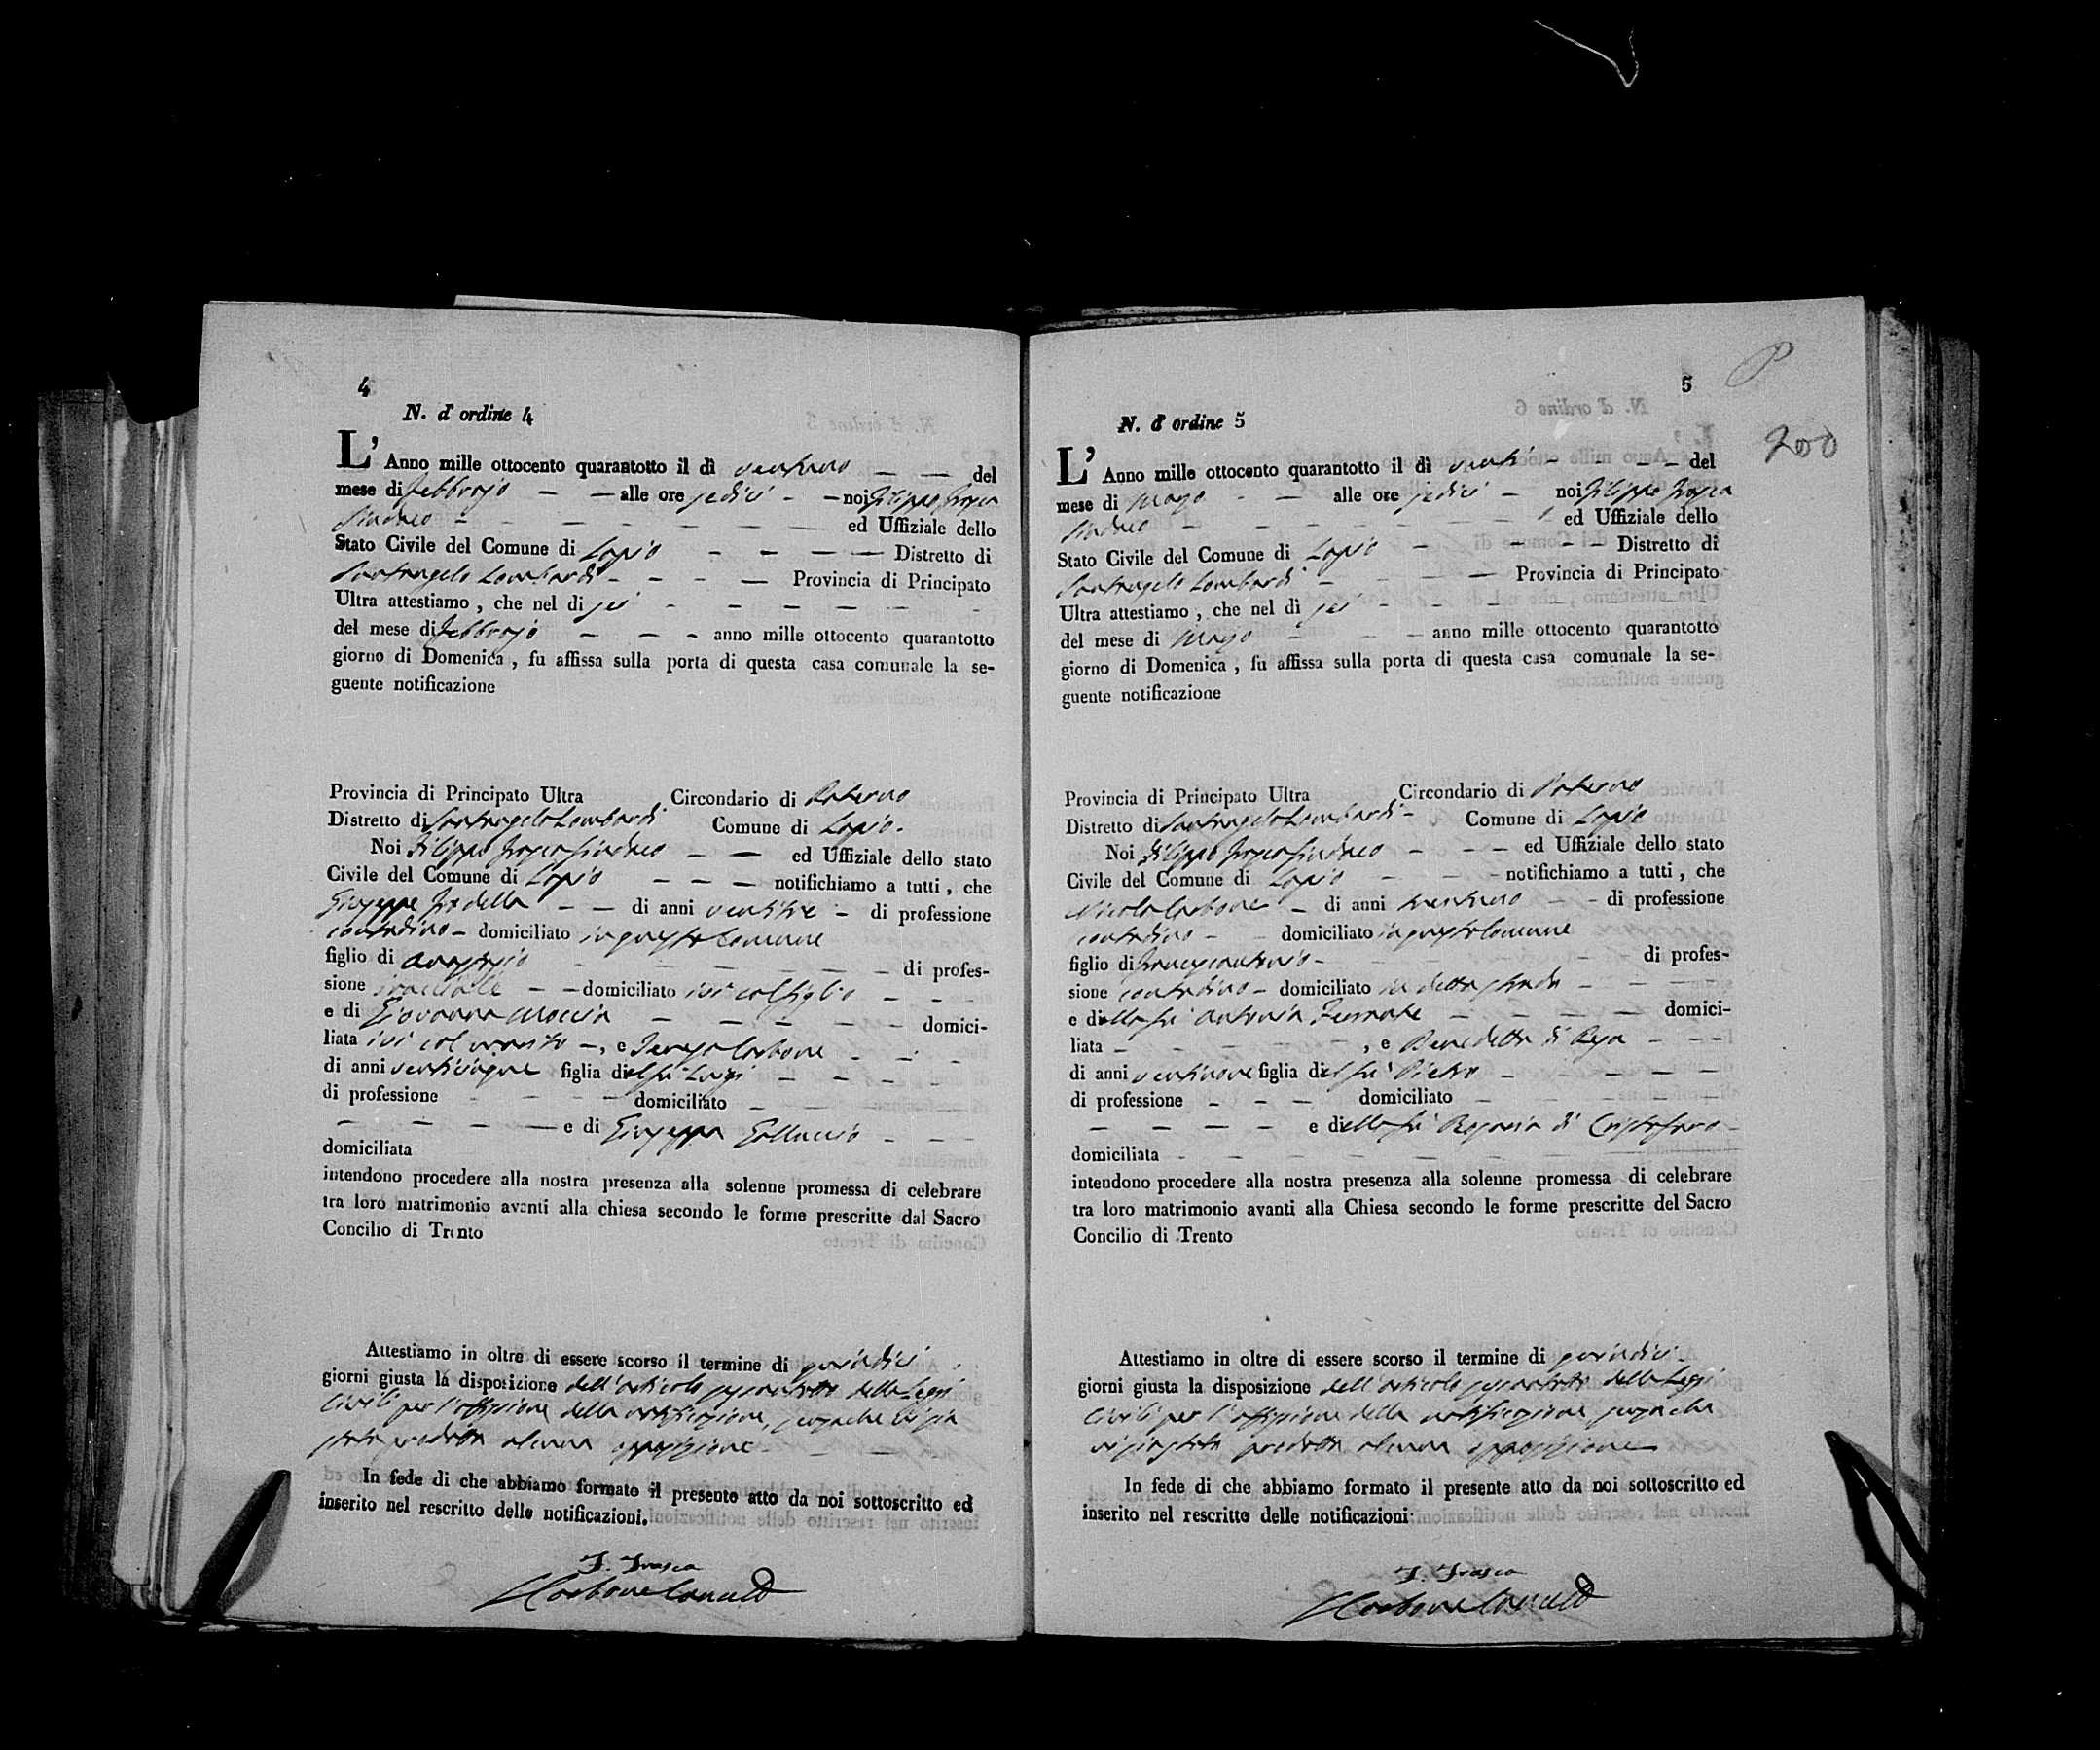 4
N. d' ordine 4
L' Anno mille ottocento quarantotto il dì ventuno — — del
mese di Febbrajo — — alle ore sedici - — noi Filippo Frasca
Sindaco — — — — — — — ed Uffiziale dello
Stato Civile del Comune di Lapio — — — — Distretto di
Santangelo Lombardi - - - — Provincia di Principato
Ultra attestiamo, che nel dì sei - - - - - -
del mese di Febbrajo — — - anno mille ottocento quarantotto
giorno di Domenica, fu affissa sulla porta di questa casa comunale la se-
guente notificazione
Provincia di Principato Ultra Circondario di Paterno
Distretto di Santangelo Lombardi Comune di Lapio.
Noi Filippo Frasca Sindaco — — ed Uffiziale dello stato
Civile del Comune di Lapio — — — notifichiamo a tutti, che
Giuseppe — — di anni ventitre - di professione
contadino - domiciliato in questo Comune
figlio di Anastasio — — — — — — di profes-
sione — — domiciliato ivi col figlio — — —
e di Giovanna Moccia — — — — — domici-
liata ivi col marito —, e Teresa Carbone — - —
di anni venticinque figlia del fu Luigi — — — — —
di professione - - - — domiciliato — — — —
— — — — e di Giuseppa Galluccio - - -
domiciliata
intendono procedere alla nostra presenza alla solenne promessa di celebrare
tra loro matrimonio avanti alla chiesa secondo le forme prescritte dal Sacro
Concilio di Trento
Attestiamo in oltre di essere scorso il termine di quindici
giorni giusta la disposizione dell'articolo sessantotto delle Leggi
Civili per l'affissione della notificazione, senza che vi sia
stata prodotta alcuna opposizione - — — —
In fede di che abbiamo formato il presente atto da noi sottoscritto ed
inserito nel rescritto delle notificazioni.
F. Frasca
Carbone
5
200
N. d' ordine 5
L' Anno mille ottocento quarantotto il dì venti - - — — del
mese di Maggio - — alle ore sedici — noi Filippo Frasca
Sindaco - - - - - - - ed Uffiziale dello
Stato Civile del Comune di Lapio - - — — Distretto di
Santangelo Lombardi - - — — Provincia di Principato
Ultra attestiamo, che nel dì sei - - - - - -
del mese di Maggio - - — anno mille ottocento quarantotto
giorno di Domenica, fu affissa sulla porta di questa casa comunale la se-
guente notificazione
Provincia di Principato Ultra Circondario di Paterno
Distretto di Santangelo Lombardi - Comune di Lapio
Noi Filippo Frasca Sindaco - - — ed Uffiziale dello stato
Civile del Comune di Lapio - - - notifichiamo a tutti, che
Nicola Carbone — di anni trentuno - - di professione
contadino - - domiciliato in questo Comune
figlio di Francescantonio - - - - - di profes-
sione contadino - domiciliato in detta strada - — —
e della fu Antonia — — — — domici-
liata — — — — —, e Benedetta di Rosa - — —
di anni ventinove figlia del fu Pietro — — — — —
di professione - - — domiciliato — — — —
— — — — e della fu Rosaria di Cristofaro -
domiciliata - — — — — — — — —
intendono procedere alla nostra presenza alla solenne promessa di celebrare
tra loro matrimonio avanti alla Chiesa secondo le forme prescritte del Sacro
Concilio di Trento
Attestiamo in oltre di essere scorso il termine di quindici -
giorni giusta la disposizione dell'articolo sessantotto delle Leggi
Civili per l'affissione della notificazione senza che
vi sia stata prodotta alcuna opposizione —
In fede di che abbiamo formato il presente atto da noi sottoscritto ed
inserito nel rescritto delle notificazioni
F. Frasca
Carbone